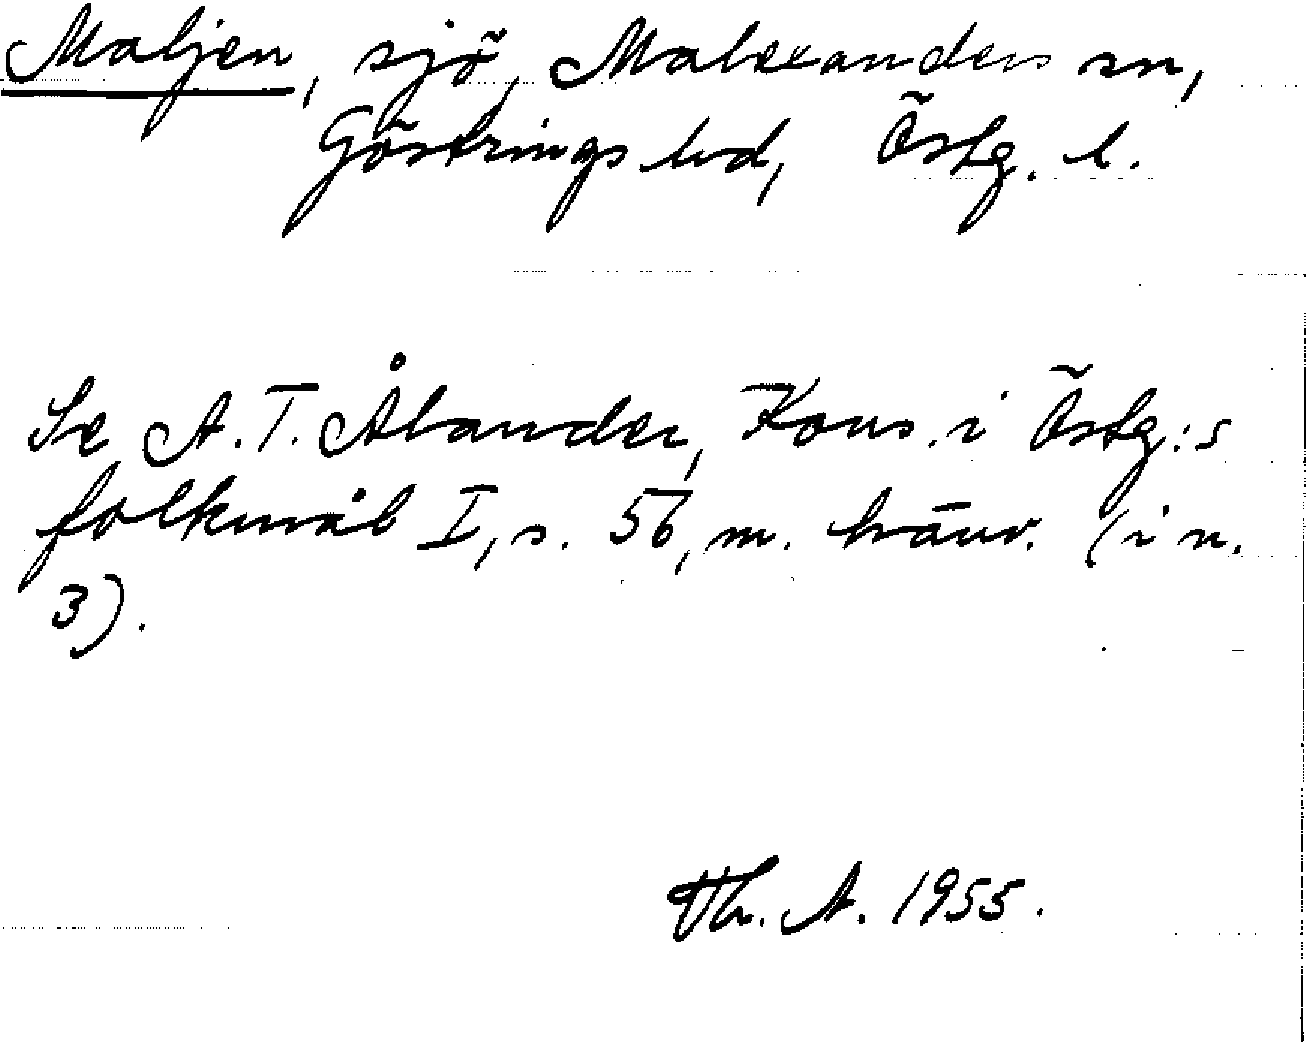 Maljen, sjö, Malexanders sn,
Göstrings hd, Östg. l.
Se A. T. Ålander, Kons. i Östg:s
folkmål I, s. 56, m. hänv. (i n.
3).
Th. A. 1955.